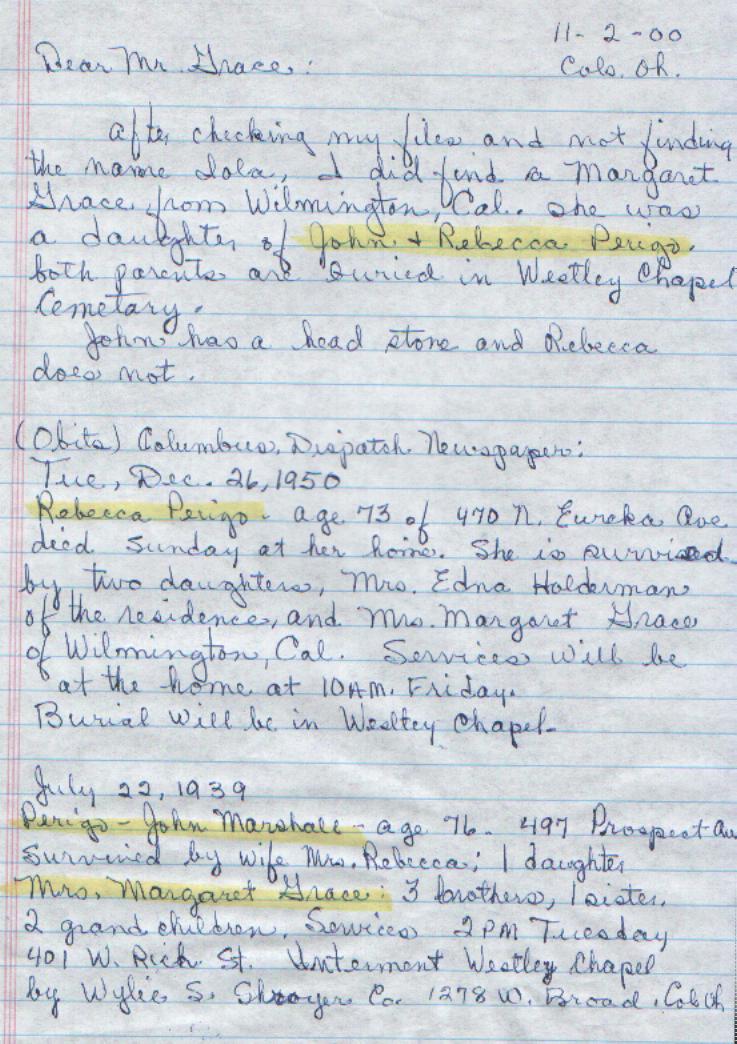 11- 2 -00
Dear Mr. Grace:
Cols. Oh.
After checking my files and not finding
the name Iola, I did find a Margaret
Grace from Wilmington, Cal. she was
a daughter of John + Rebecca Perigo.
both parents are buried in Westley Chapel
Cemetary.
John has a head stone and Rebecca
does not.
(Obits) Columbus, Dispatch Newspaper:
Tue, Dec. 26, 1950
Rebecca Perigo - age 73 of 470 N. Eureka Ave
died Sunday at her home. She is survived
by two daughters, Mrs. Edna Holderman
of the residence, and Mrs. Margaret Grace
of Wilmington, Cal. Services will be
at the home at 10AM. Friday.
Burial will be in Westley Chapel-
July 22, 1939
Perigo - John Marshall - age 76 - 497 Prospect Av
Survived by wife Mrs. Rebecca; 1 daughter
Mrs. Margaret Grace; 3 brothers, 1 sister,
2 grand children. Services 2PM Tuesday
401 W. Rich St. Interment Westley Chapel
by Wylie S. Shroyer Co. 1278 W. Broad, Col Oh